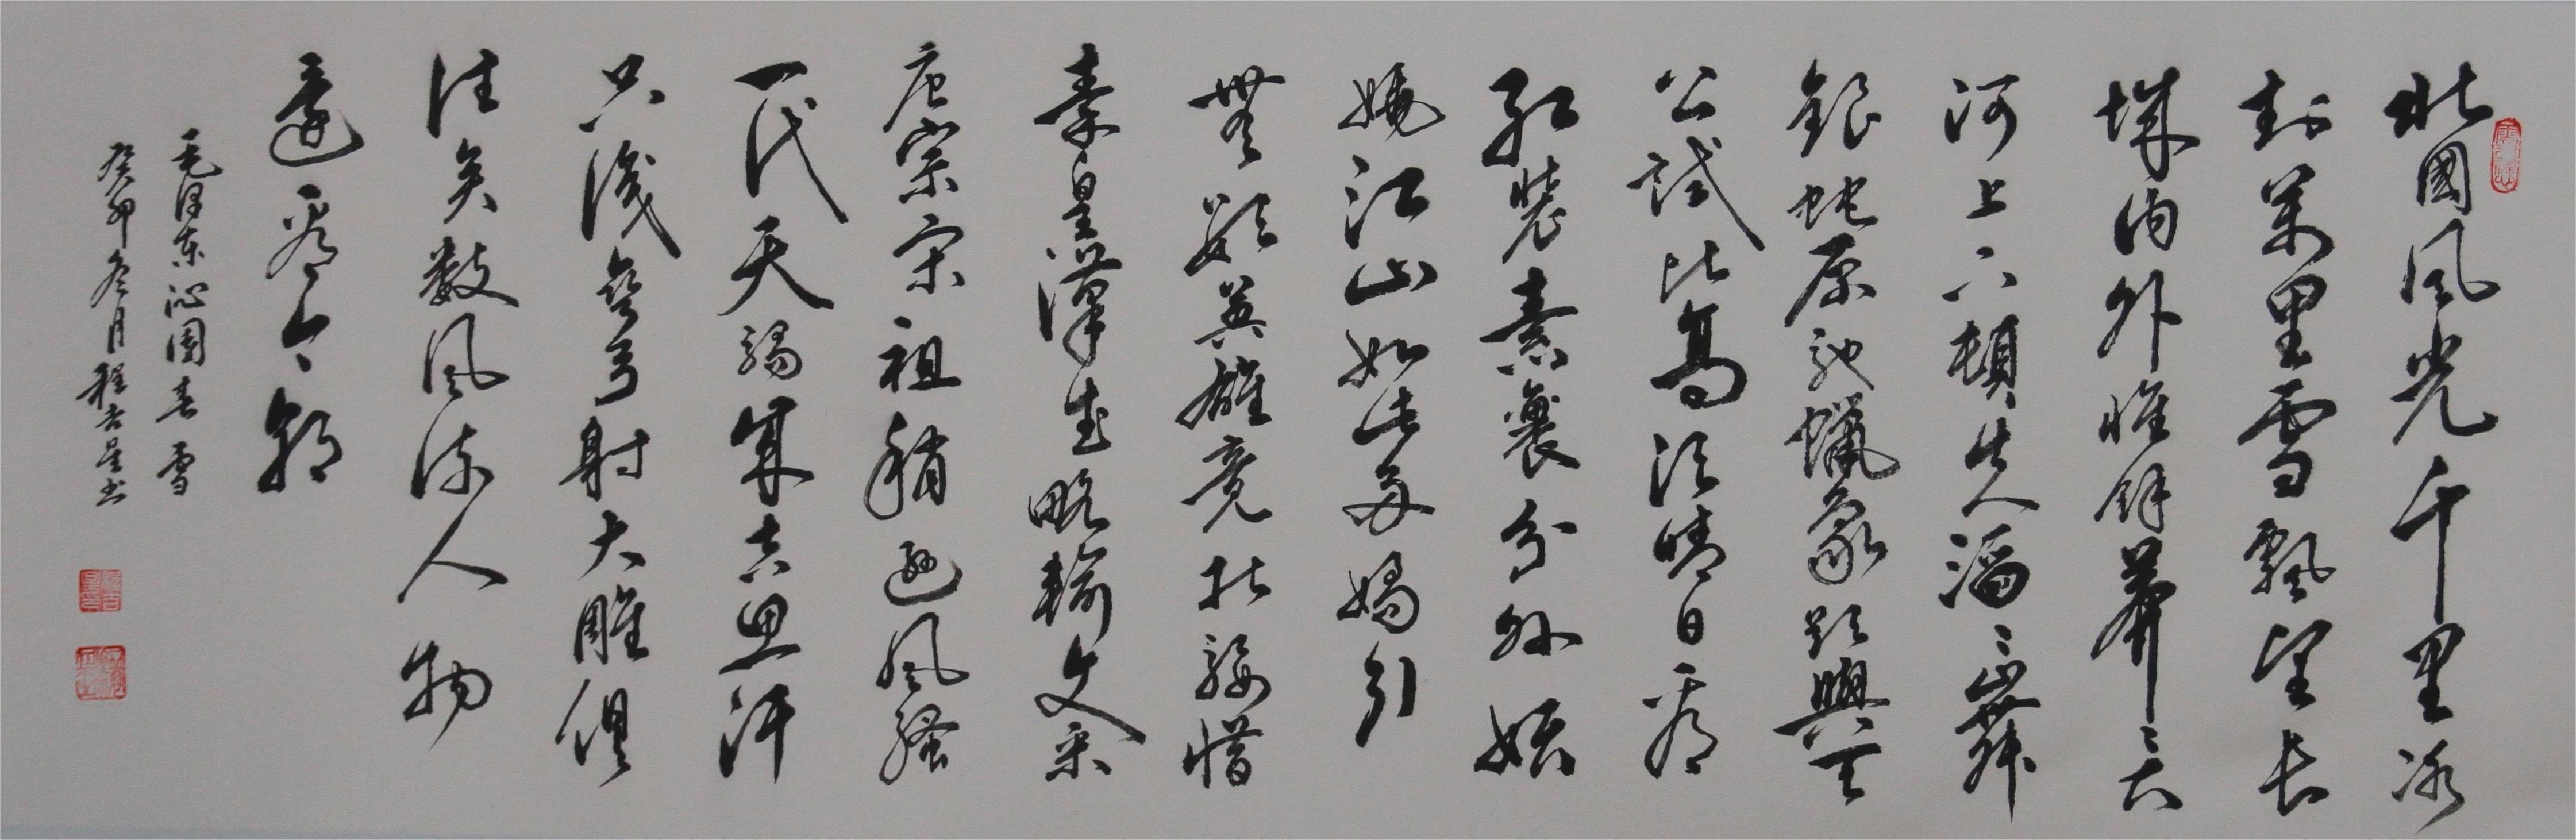 北國風光千里冰
封萬里雪飄望長
城内外惟餘莽〻大
河上下頓失滔〻山舞
銀蛇原馳蠟象欲與天
公試比高須晴日看
紅裝素裹分外妖
嬈江山如此多嬌引
無數英雄竞折腰惜
秦皇漢武略輸文采
唐宗宋祖稍遜風騷
一代天驕成吉思汗
只識彎弓射大雕俱
往矣數風流人物
還看今朝
毛澤東沁園春雪
癸卯冬月程吉星书